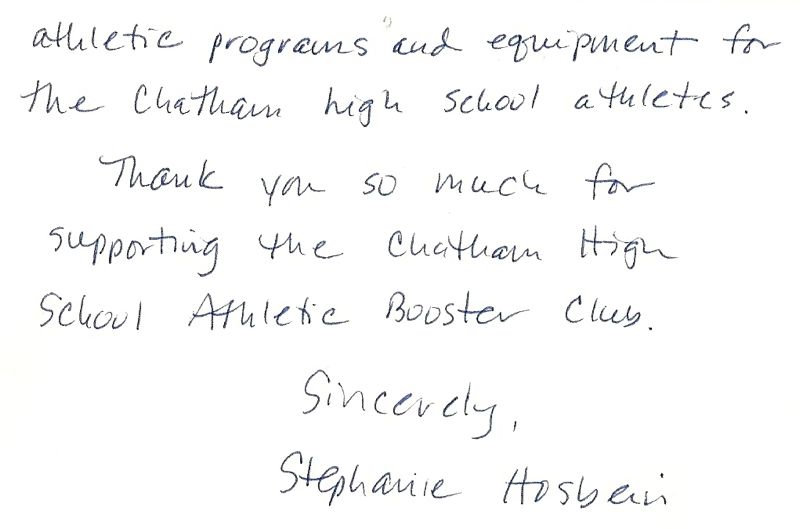 athletic programs and equipment for
the Chatham high school athletes.
Thank you so much for
supporting the Chatham High
School Athletic Booster Club.
Sincerely,
Stephanie Hosbein